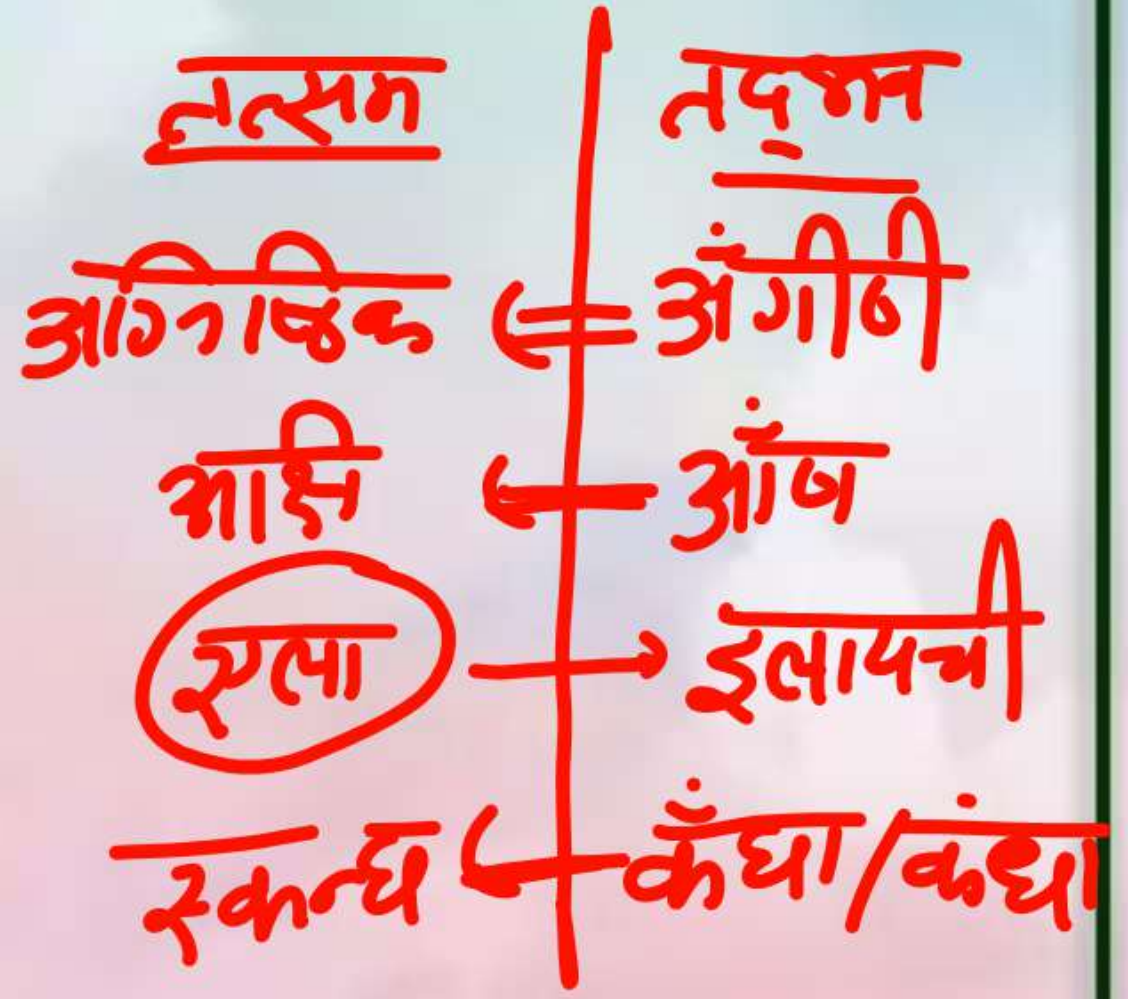 तत्सम तद्भव
अग्निष्ठिक अंगीठी
अक्षि आँख
एला इलायची
स्कन्ध कँधा/कंधा